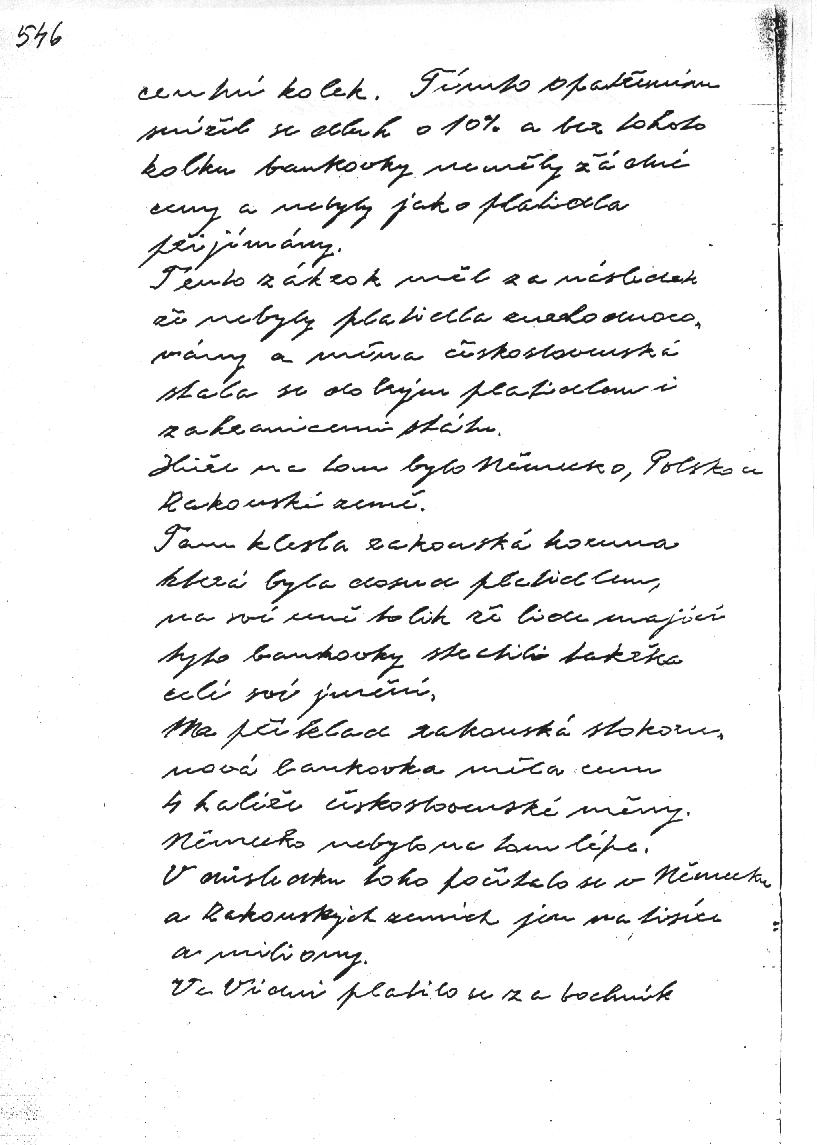 546
cenní kolek. Tímto opatřením
snížil se dluh o 10% a bez tohoto
kolku bankovky neměly žádné
ceny a nebyly jako platidla
přijímány.
Tento zákrok měl za následek
že nebyly platidla znehodnoco,
vány a měna československá
stala se dobrým platidlem i
zahraničními státu.
Hůře na tom bylo Německo, Polsko a
Rakouské země.
Tam klesla rakouská koruna
která byla dosud platidlem,
na své ceně tolik že lidé mající
tyto bankovky ztratili takřka
celé své jmění.
Na příklad rakouská stokoru,
nová bankovka měla cenu
4 haléře československé měny.
Německo nebylo na tom lépe.
V důsledku toho počítalo se v Německu
a Rakouských zemích jen na tisíce
a miliony.
Ve Vídni platilo se za bochník